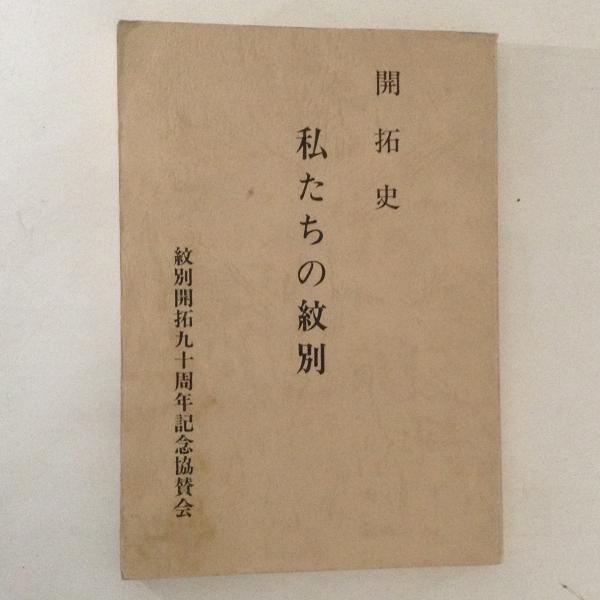 開拓史
私たちの紋別
紋別開拓九十周年記念協賛会